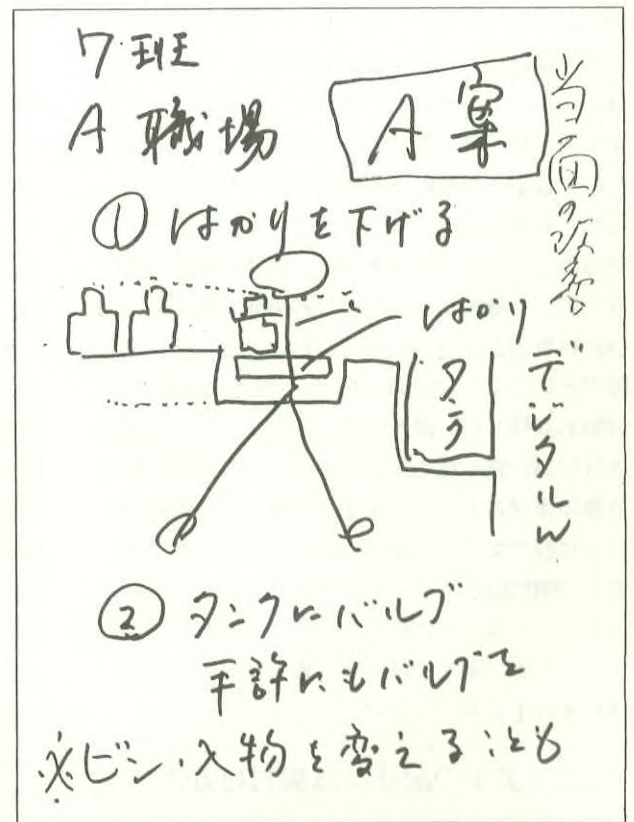 7班
A職場
A案
当面の改善
① はかりを下げる
はかり
タラ
デジタルん
② タンクにバルブ
手許にもバルブを
※ビン・入物を変えることも